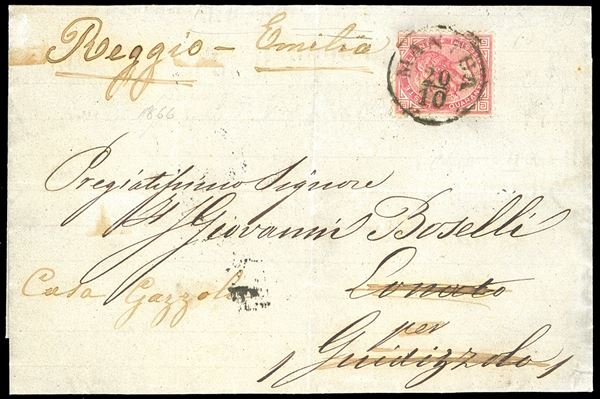 Reggio - Emilia
MANTOVA
20
10
QUARANTA
1866
Pregiatissimo Signore
Giovanni Boselli
Casa Gazzola
Lonato
per
Guidizzolo